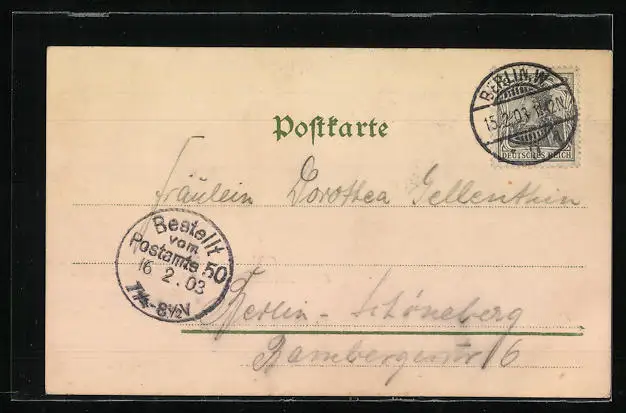 BERLIN.W.
15.2.03.
DEUTSCHES REICH
Postkarte
Fräulein Dorothea Gellenthien
Bestellt
vom
Postamte 50
16 2.03
7¼-8½V
Berlin-Schöneberg
Bambergerstr 6